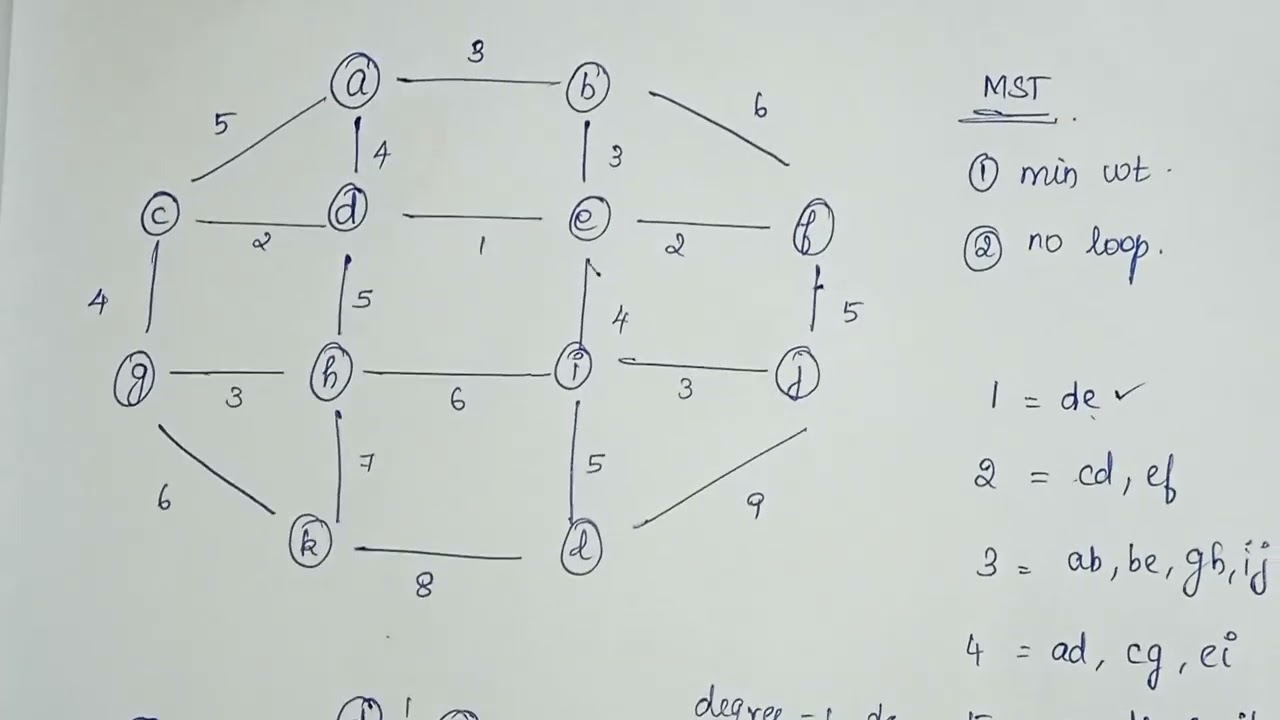 3
a
b
MST
5
4
3
6
① min wt.
c
d
e
f
② no loop.
2
1
2
4
5
4
5
g
h
i
j
3
6
3
1 = de ✓
6
7
5
9
2 = cd, ef
k
l
8
3 = ab, be, gh, ij
4 = ad, cg, ei
1
degree -1